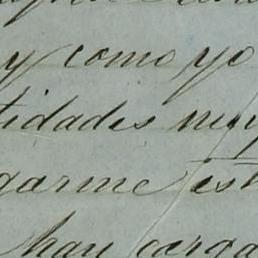 y como yo
tidades
garme est
hay carga